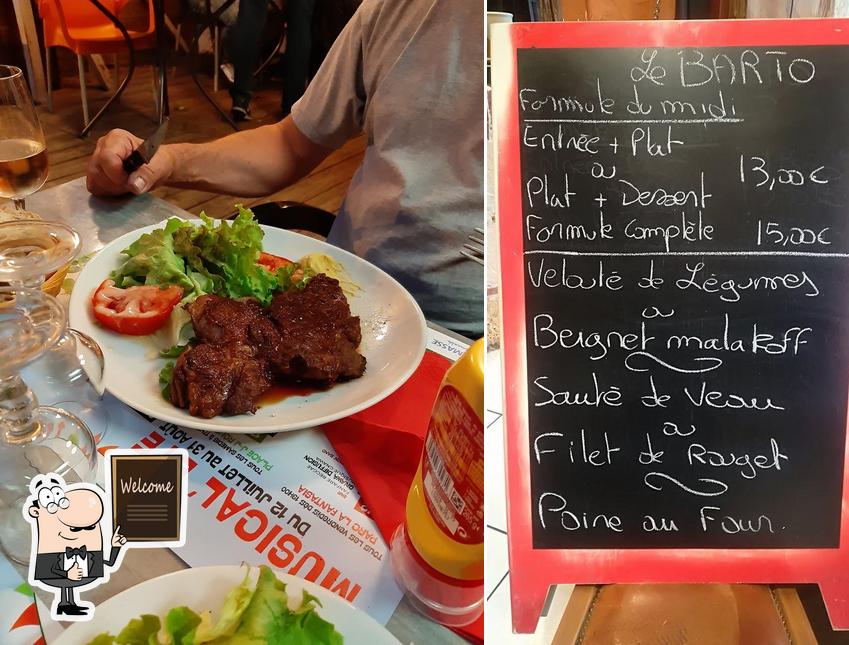 Le BARTO
Formule du midi
Entrée + Plat
ou
13,00€
Plat + Dessert
Formule Complète 15,00€
Velouté de Légumes
ou
Beignet malakoff
Sauté de Veau
ou
Filet de Rouget
Poire au Four.
Welcome
MASSE
MUSICAL
DU 12 JUILLET au 31 AOÛT
TOUS LES VENDREDIS DÈS 19H00
PARC LA FANTASIA